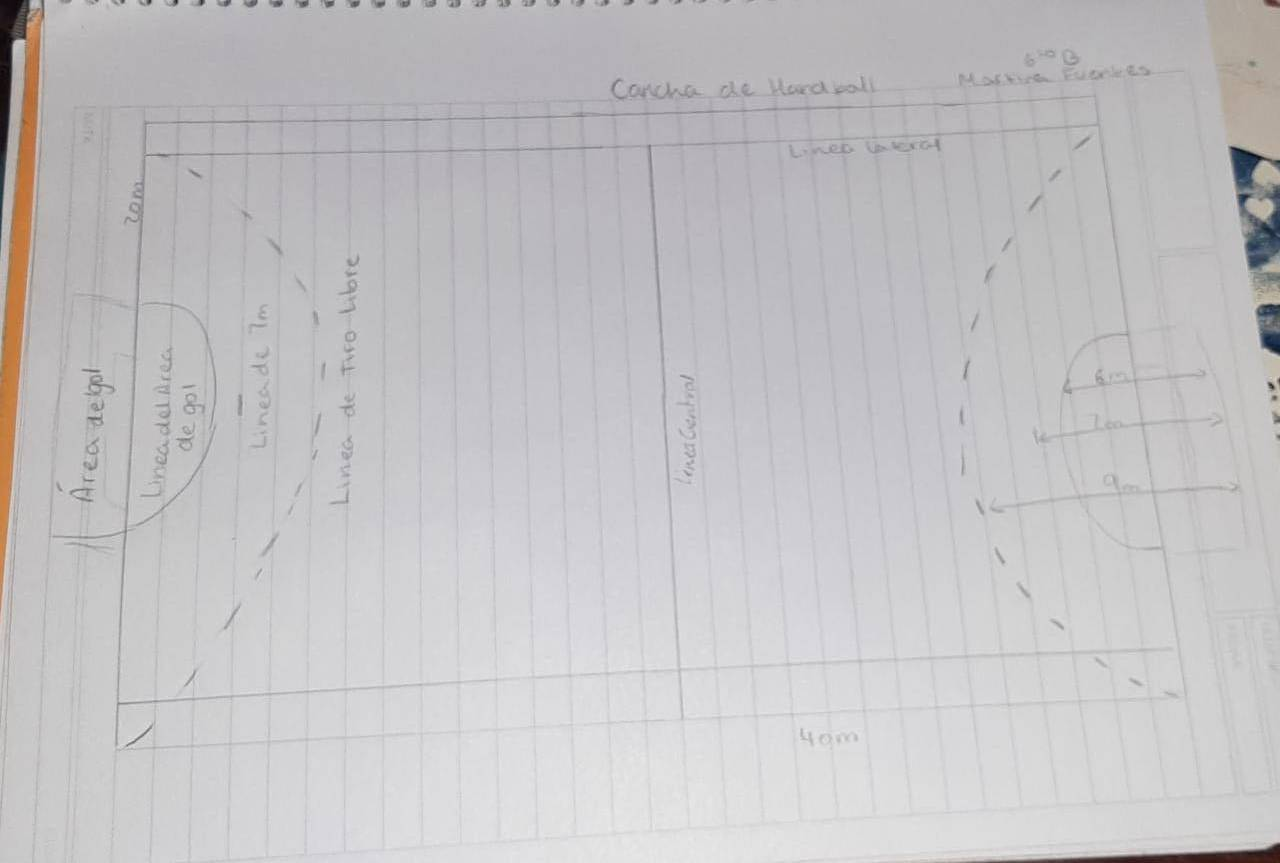 6to B
Cancha de Handball
Martina Fuentes
Linea lateral
20m
Área del gol
Linea del Área
de gol
Linea de 7m
Linea de Tiro Libre
Linea Central
6m
7m
9m
40m